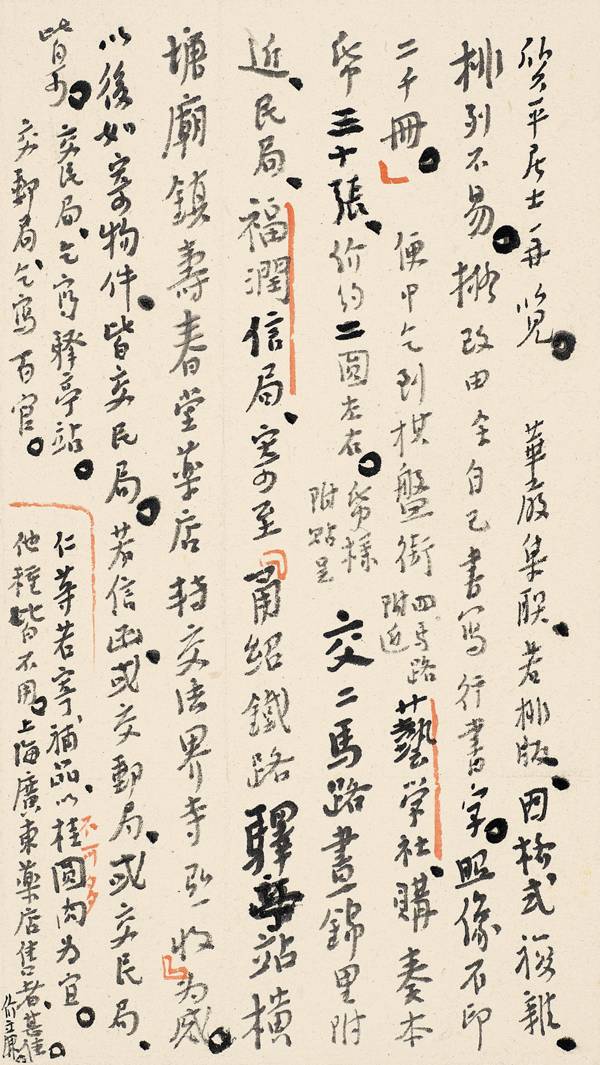 質平居士再覽。華嚴集联、若排版、因格式複雜、
排列不易。擬改由余自己書寫行書字。照像石印
二千冊。便中乞到棋盤街四馬路附近藝学社、購奏本
帋三十張、价約二圓左右。帋樣附點呈交二馬路晝錦里附
近、民局、福潤信局、寄至甬紹鐵路驛亭站橫
塘廟鎮壽春堂薬店轉交法界寺弘一收为感。
以後如寄物件、皆交民局。若信函、或交郵局、或交民局、
皆可。交民局、乞寫驛亭站。
交郵局、乞寫百官。
仁等若寄補品、以桂圓肉为宜。
不可多
他種皆不用。上海廣東薬店售者甚佳。